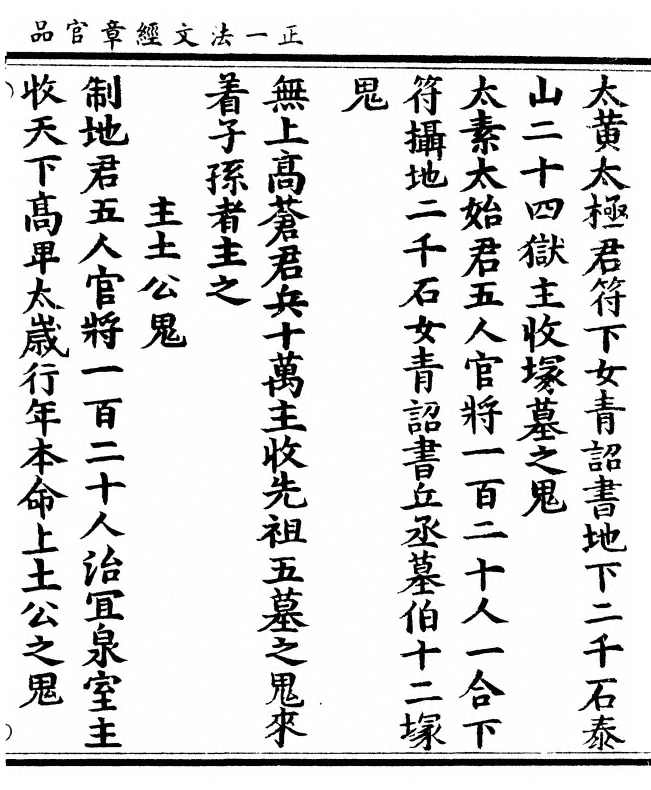 正一法文經章官品
太黄太極君符下女青詔書地下二千石泰
山二十四獄主收塚墓之鬼
太素太始君五人官將一百二十人一合下
符攝地二千石女青詔書丘丞墓伯十二塚
鬼
無上高蒼君兵十萬主收先祖五墓之鬼來
着子孫者主之
主土公鬼
制地君五人官將一百二十人治冝泉室主
收天下高卑太歲行年本命上土公之鬼